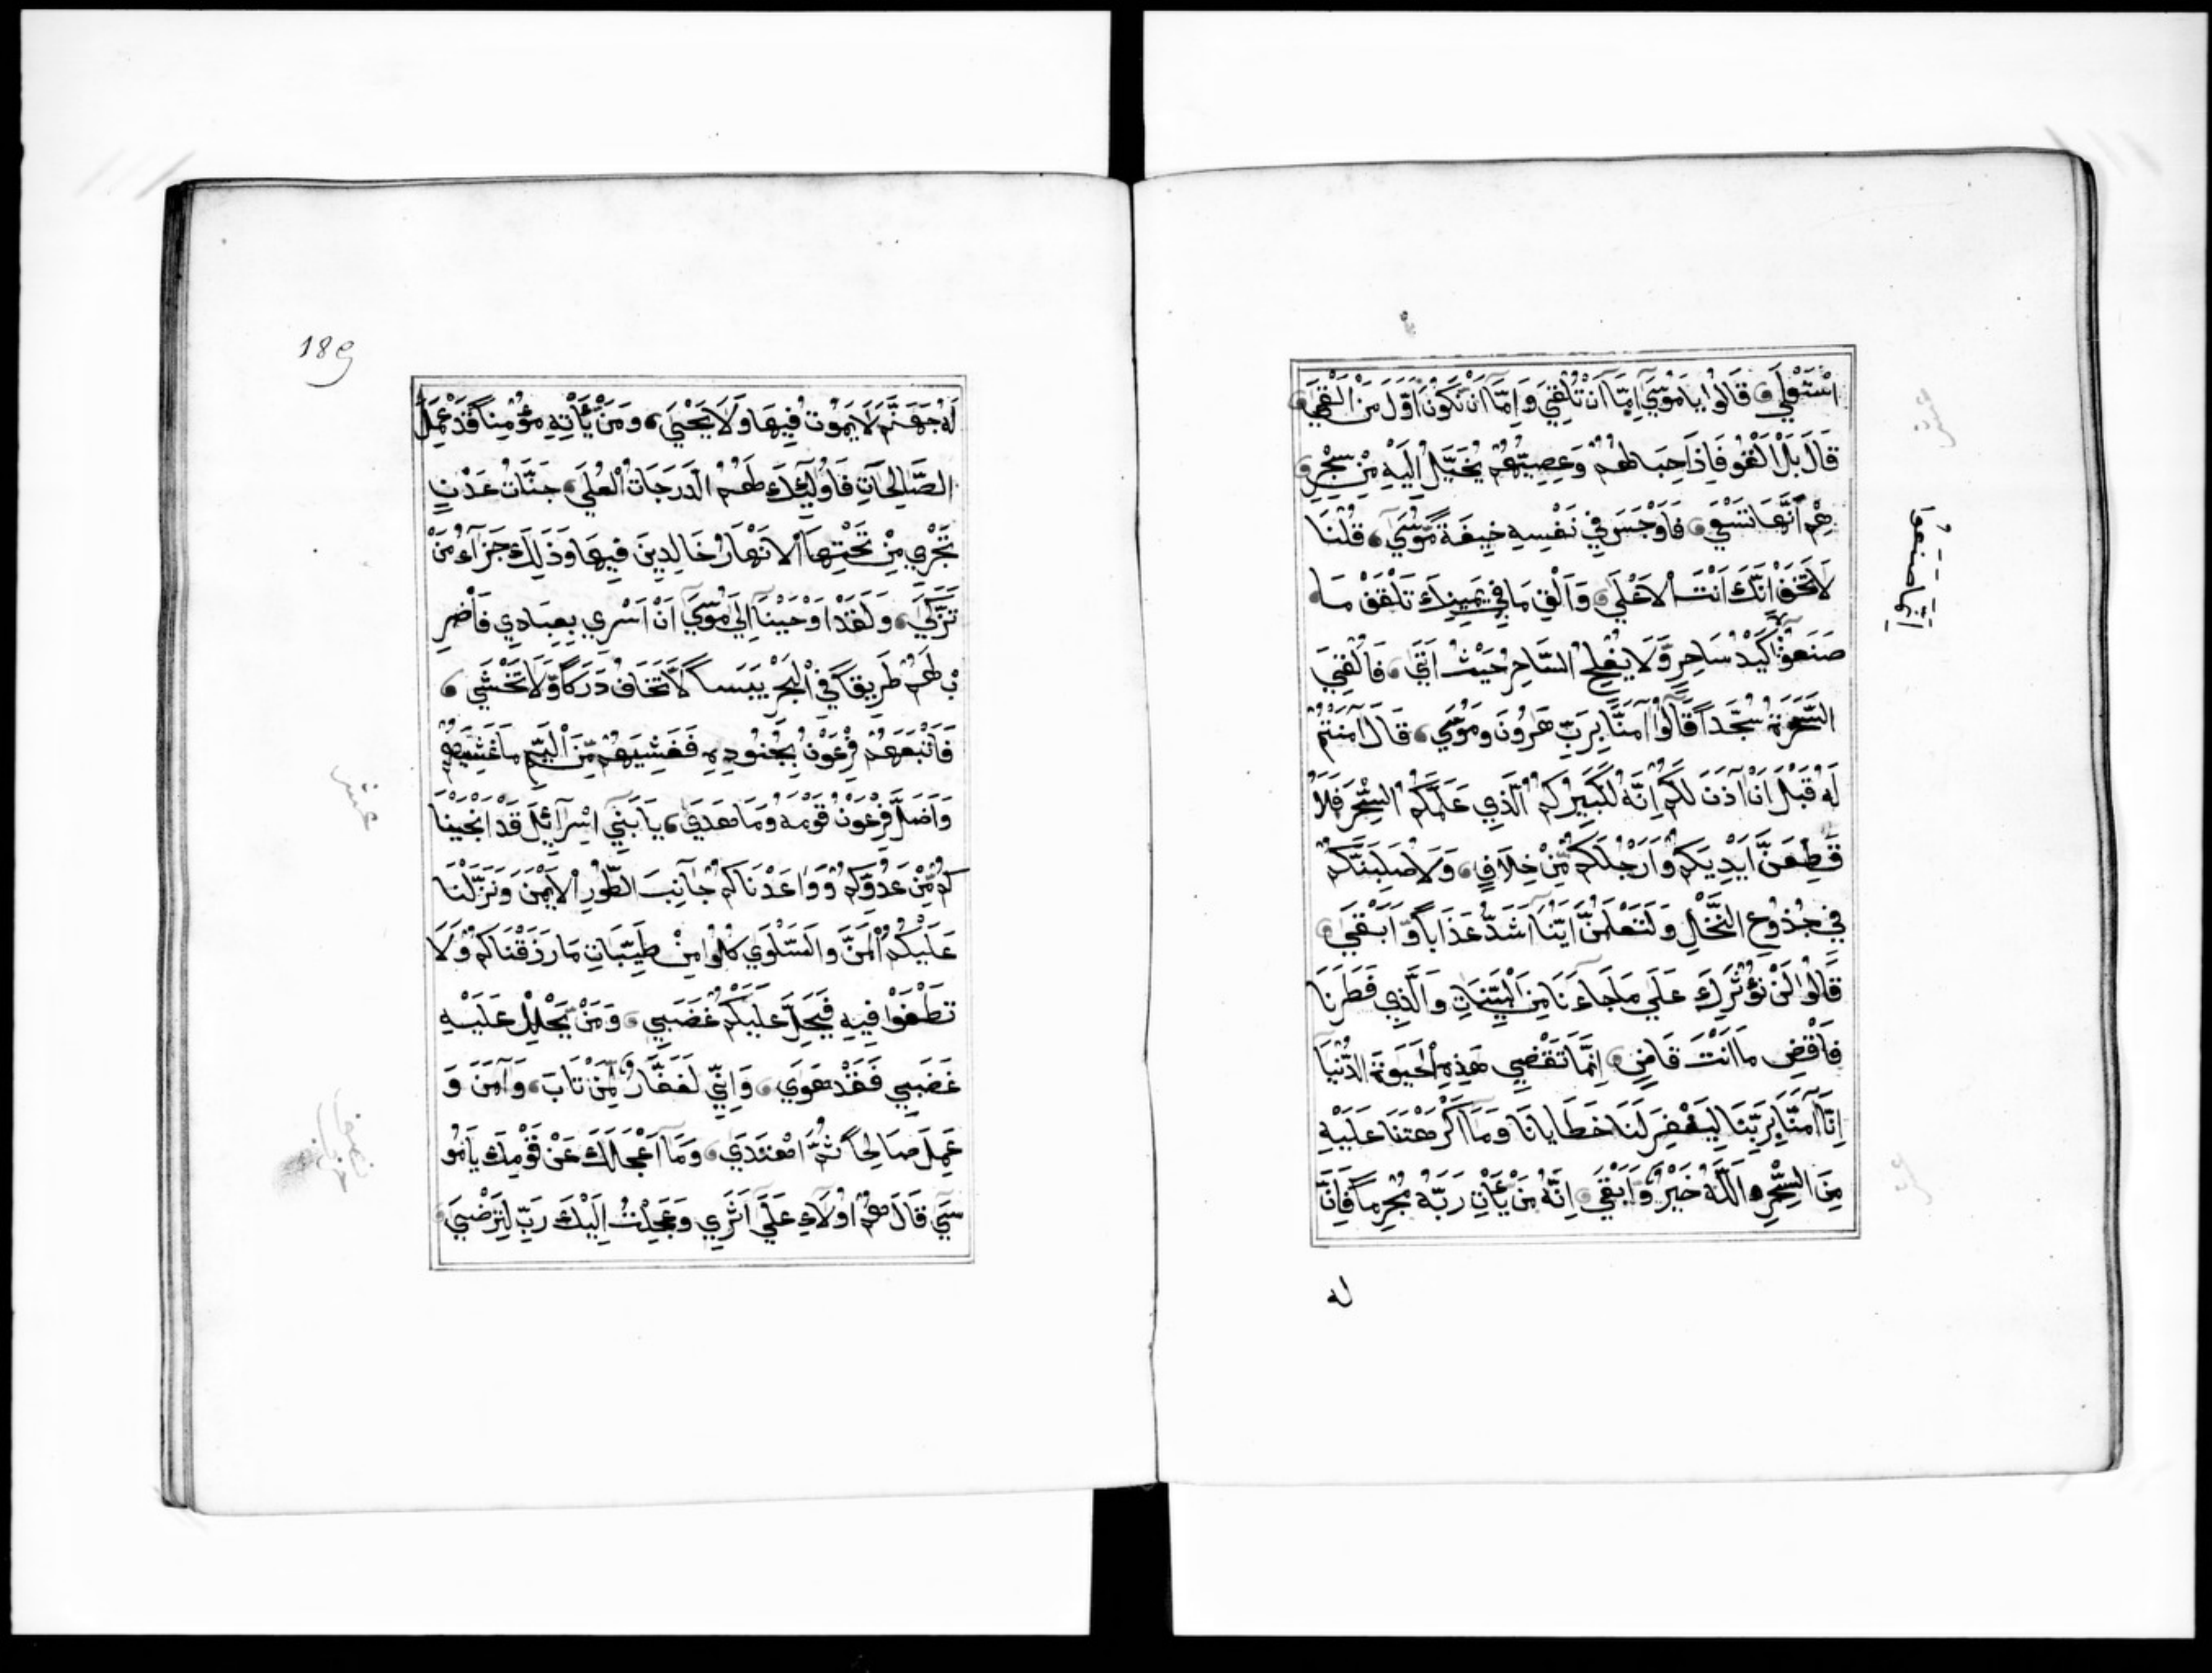 اسْتَعْلَى قَالُوا يَا مُوسَى إِمَّا أَنْ تُلْقِيَ وَإِمَّا أَنْ نَكُونَ أَوَّلَ مَنْ أَلْقَى
قَالَ بَلْ أَلْقُو فَإِذَا حِبَالُهُمْ وَعِصِيُّهُمْ يُخَيَّلُ إِلَيْهِ مِنْ سِحْرِ
هِمْ أَنَّهَا تَسْعَى فَأَوْجَسَ فِي نَفْسِهِ خِيفَةً مُوسَى قُلْنَا
لَا تَخَفْ إِنَّكَ أَنْتَ الْأَعْلَى وَأَلْقِ مَا فِي يَمِينِكَ تَلْقَفْ مَا
صَنَعُوا كَيْدُ سَاحِرٍ وَلَا يُفْلِحُ السَّاحِرُ حَيْثُ أَتَى فَأُلْقِيَ
السَّحَرَةُ سُجَّدًا قَالُوا آمَنَّا بِرَبِّ هَرُونَ وَمُوسَى قَالَ آمَنْتُمْ
لَهُ قَبْلَ أَنْ آذَنَ لَكُمْ إِنَّهُ لَكَبِيرُكُمُ الَّذِي عَلَّمَكُمُ السِّحْرَ فَلَأُ
قَطِّعَنَّ أَيْدِيَكُمْ وَأَرْجُلَكُمْ مِنْ خِلَافٍ وَلَأُصَلِّبَنَّكُمْ
فِي جُذُوعِ النَّخْلِ وَلَتَعْلَمُنَّ أَيُّنَا أَشَدُّ عَذَابًا وَأَبْقَى
قَالُوا لَنْ نُؤْثِرَكَ عَلَى مَا جَاءَنَا مِنَ الْبَيِّنَاتِ وَالَّذِي فَطَرَنَا
فَاقْضِ مَا أَنْتَ قَاضٍ إِنَّمَا تَقْضِي هَذِهِ الْحَيَوةَ الدُّنْيَا
إِنَّا آمَنَّا بِرَبِّنَا لِيَغْفِرَ لَنَا خَطَايَانَا وَمَا أَكْرَهْتَنَا عَلَيْهِ
مِنَ السِّحْرِ وَاللَّهُ خَيْرٌ وَأَبْقَى إِنَّهُ مَنْ يَأْتِ رَبَّهُ مُجْرِمًا فَإِنَّ
له
إِنَّمَا صَنَعُوا
189
لَهُ جَهَنَّمَ لَا يَمُوتُ فِيهَا وَلَا يَحْيَى وَمَنْ يَأْتِهِ مُؤْمِنًا قَدْ عَمِلَ
الصَّالِحَاتِ فَأُولَئِكَ لَهُمُ الدَّرَجَاتُ الْعُلَى جَنَّاتُ عَدْنٍ
تَجْرِي مِنْ تَحْتِهَا الْأَنْهَارُ خَالِدِينَ فِيهَا وَذَلِكَ جَزَاءُ مَنْ
تَزَكَّى وَلَقَدْ أَوْحَيْنَا إِلَى مُوسَى أَنْ أَسْرِي بِعِبَادِي فَاضْرِ
بْ لَهُمْ طَرِيقًا فِي الْبَحْرِ يَبَسًا لَا تَخَافُ دَرَكًا وَلَا تَخْشَى
فَأَتْبَعَهُمْ فِرْعَوْنُ بِجُنُودِهِ فَغَشِيَهُمْ مِنَ الْيَمِّ مَا غَشِيَهُمْ
وَأَضَلَّ فِرْعَوْنُ قَوْمَهُ وَمَا هَدَى يَا بَنِي إِسْرَائِلَ قَدْ أَنْجَيْنَا
كُمْ مِنْ عَدُوِّكُمْ وَوَاعَدْنَاكُمْ جَانِبَ الطُّورِ الْأَيْمَنَ وَنَزَّلْنَا
عَلَيْكُمُ الْمَنَّ وَالسَّلْوَى كُلُوا مِنْ طَيِّبَاتِ مَا رَزَقْنَاكُمْ وَلَا
تَطْغَوْا فِيهِ فَيَحِلَّ عَلَيْكُمْ غَضَبِي وَمَنْ يَحْلِلْ عَلَيْهِ
غَضَبِي فَقَدْ هَوَى وَإِنِّي لَغَفَّارٌ لِمَنْ تَابَ وَآمَنَ وَ
عَمِلَ صَالِحًا ثُمَّ اهْتَدَى وَمَا أَعْجَلَكَ عَنْ قَوْمِكَ يَا مُو
سَى قَالَ هُمْ أُولَاءِ عَلَى أَثَرِي وَعَجِلْتُ إِلَيْكَ رَبِّ لِتَرْضَى
عشر